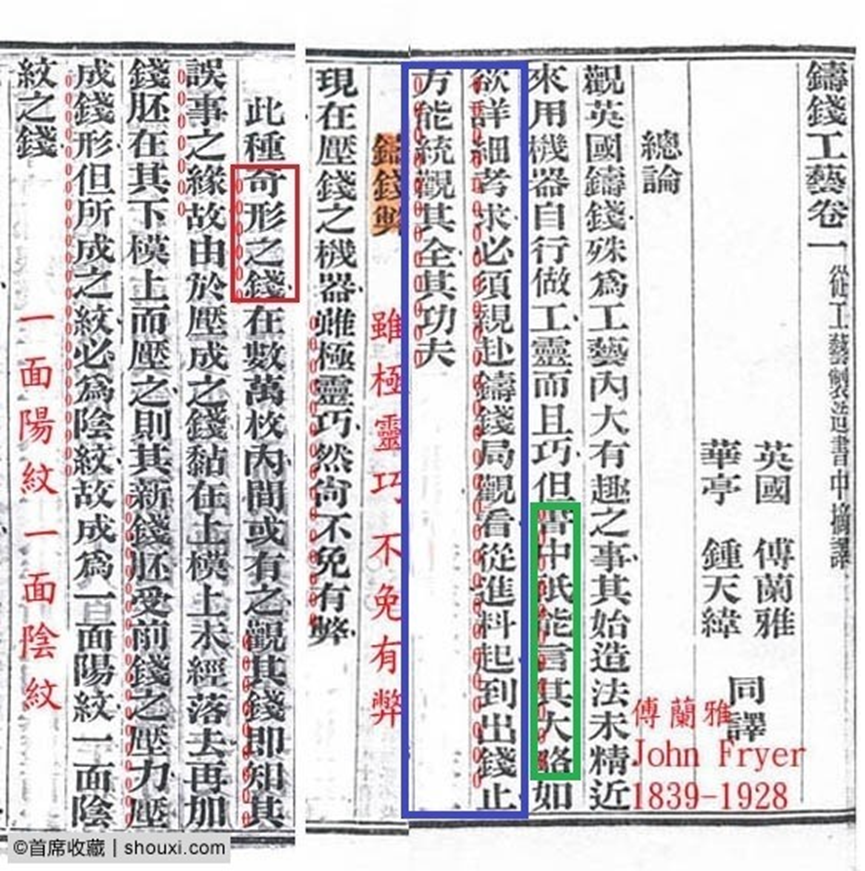 鑄錢工藝卷一 從工藝製造書中摘譯
英國 傅蘭雅
華亭 鍾天緯
同譯
總論
觀英國鑄錢殊爲工藝內大有趣之事其始造法未精近
來用機器自行做工靈而且巧但書中祇能言其大略如
欲詳細考求必須親赴鑄錢局觀看從進料起到出錢止
方能統觀其全其功夫
傅蘭雅
John Fryer
1839-1928
鑄錢弊
雖極靈巧不免有弊
現在壓錢之機器雖極靈巧然尙不免有弊
此種奇形之錢在數萬枚內間或有之觀其錢即知其
誤事之緣故由於壓成之錢黏在上模上未經落去再加
錢胚在其下模上而壓之則其新錢胚受前錢之壓力壓
成錢形但所成之紋必爲陰紋故成爲一面陽紋一面陰
紋之錢
一面陽紋一面陰紋
©首席收藏 | shouxi.com